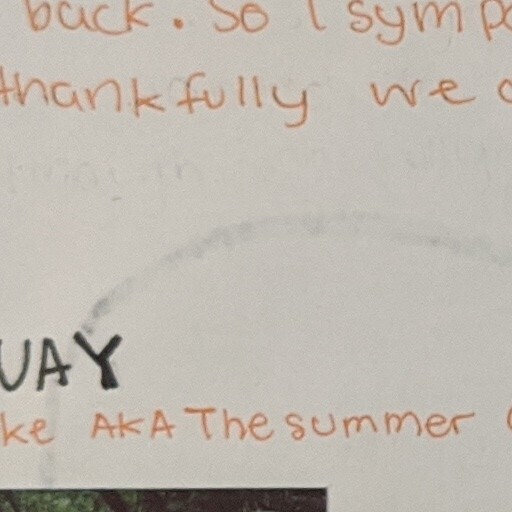 back. So I symp
thankfully we
UAY
ke AKA The summer